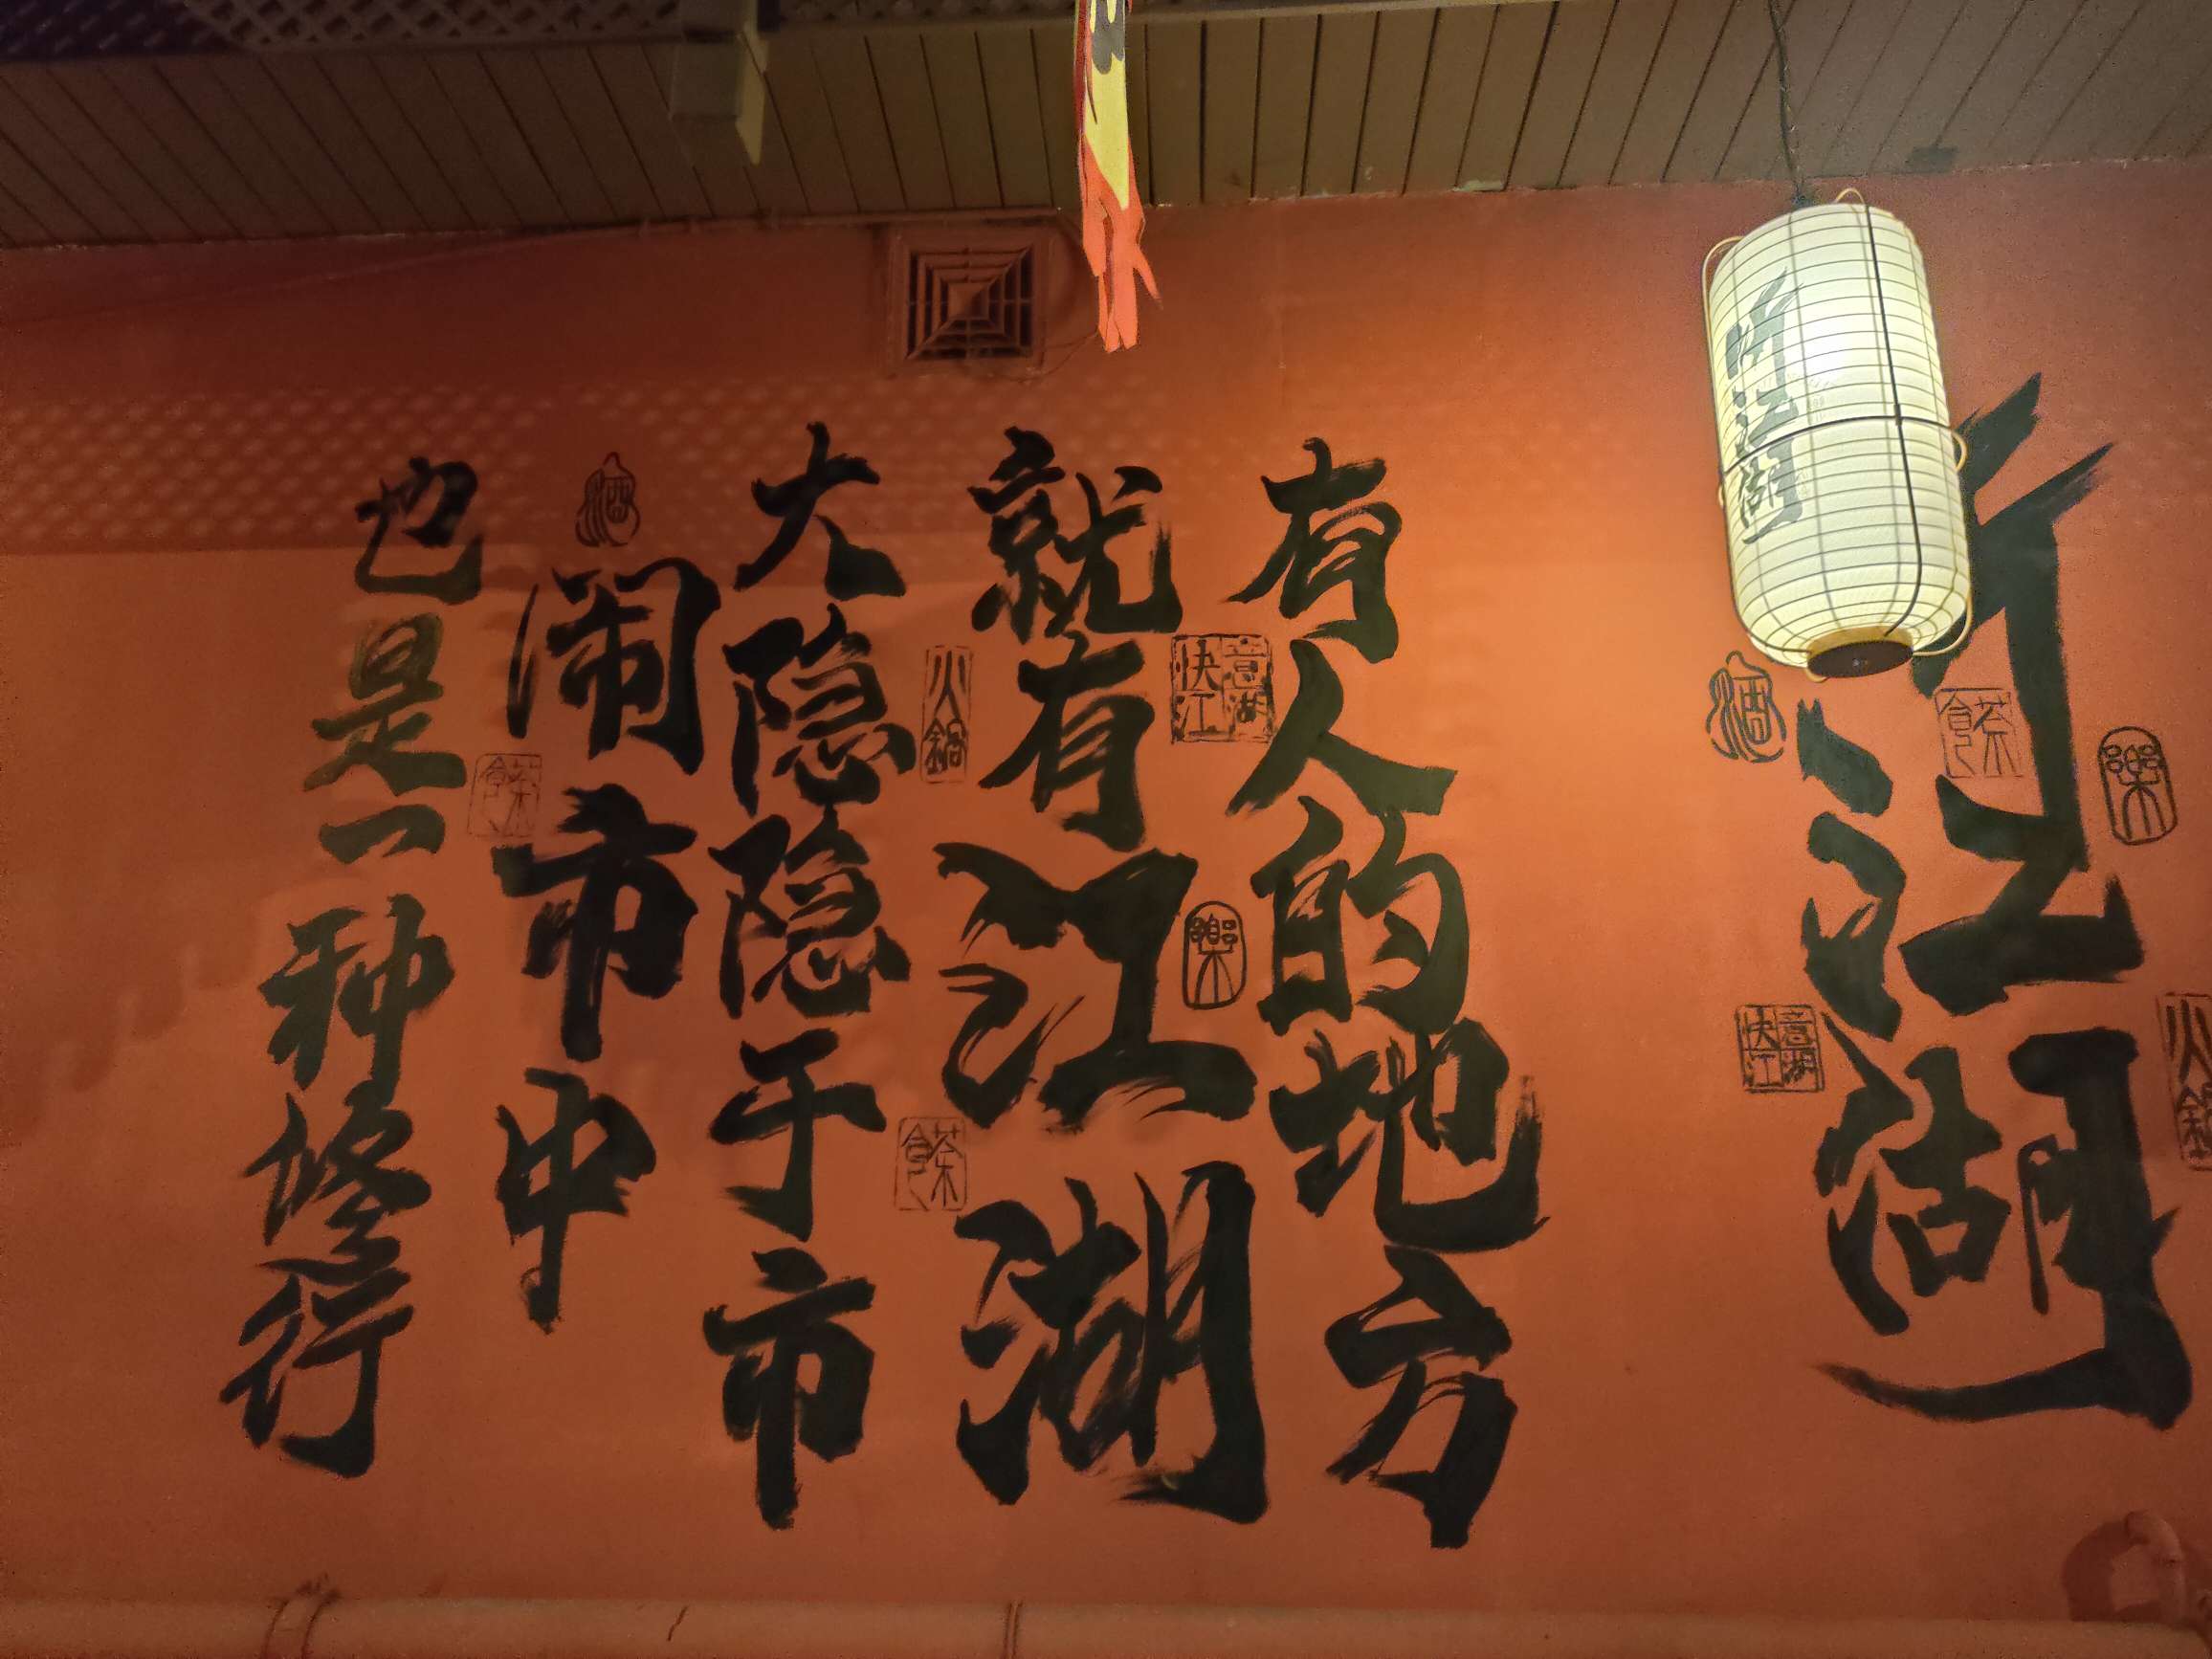 江湖
江湖
酒
茶食
樂
快意江湖
火鍋
有人的地方
快意江湖
樂
就有江湖
火鍋
茶食
大隐隐于市
酒
闹市中
茶食
也是一种修行